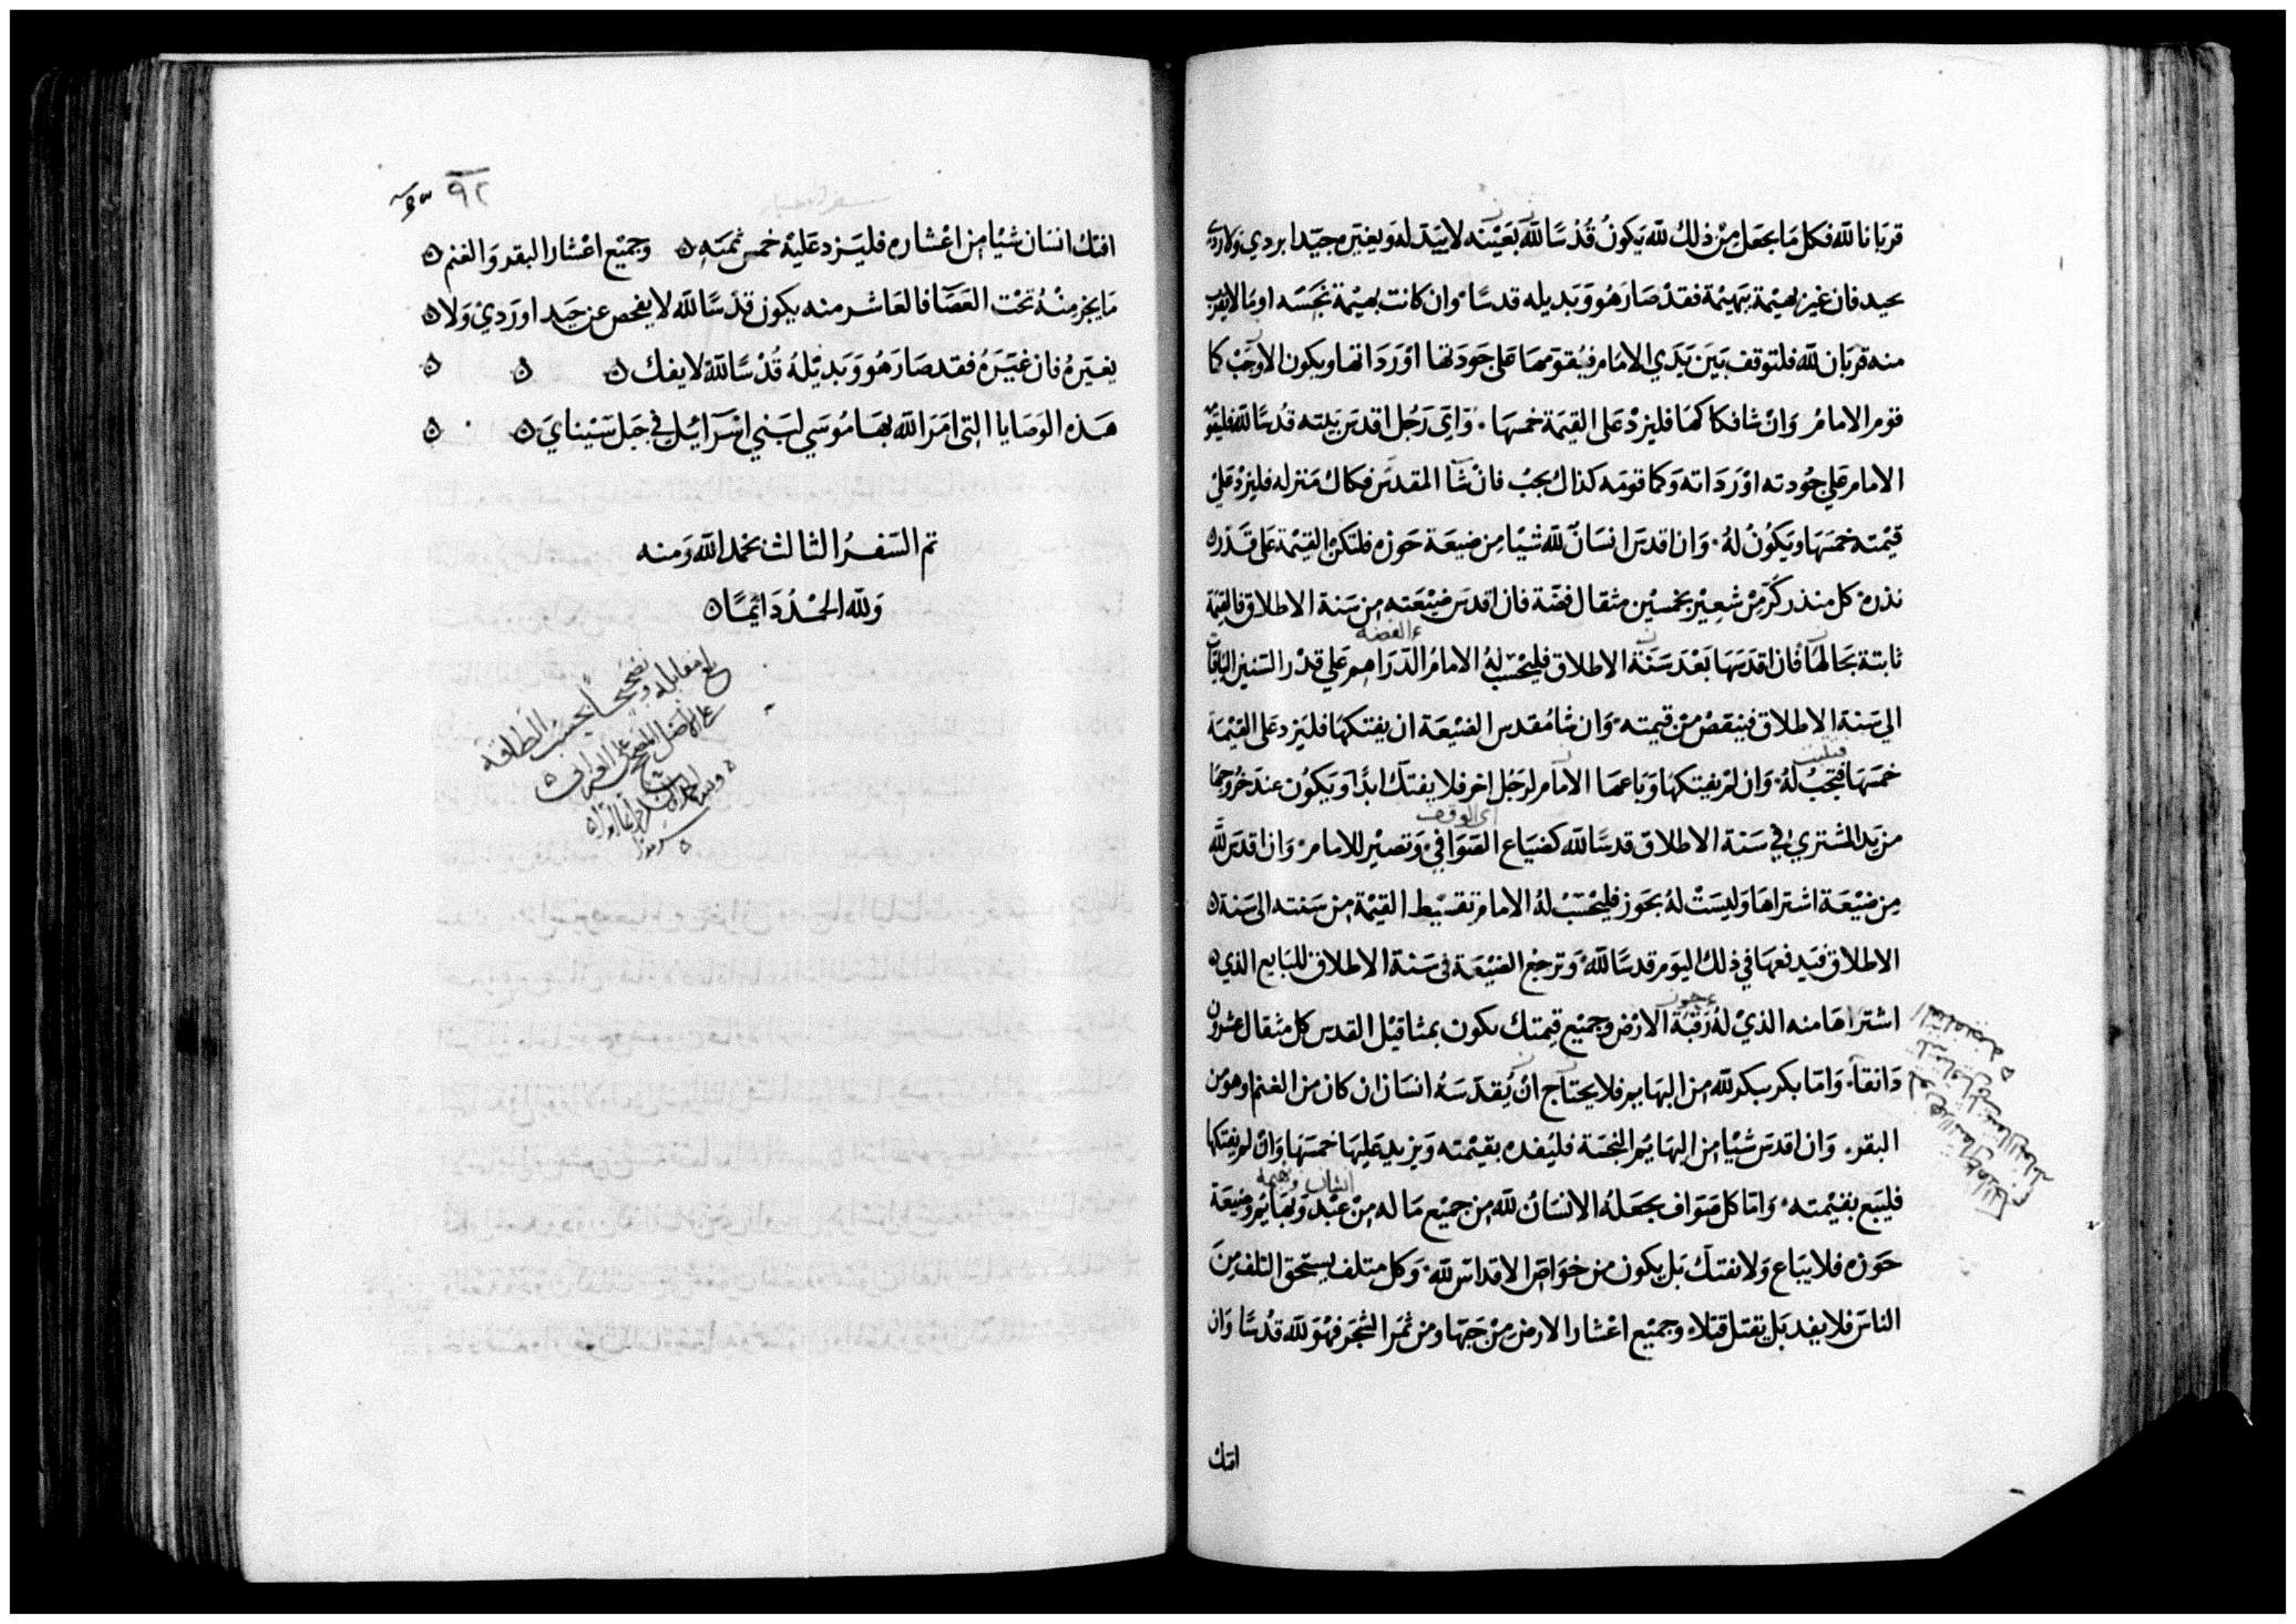 قربانا لله فكل ما يجعل من ذلك لله يكون قُدْسًا لله بعَيْنه لا يبَدّله ويغيّره جيّدا بردي ولا ردي
بجيد فان غير بهيمة ببهيمة فقد صَار هُو وَبَديله قدسًا وان كانت بهيمة نجسَه او ما لا يقرب
منه قربَان لله فلتوقف بَين يَدَي الامَام فيُقومهَا على جَودَتها اوْ رَدَاتها ويكون الاوجَب كما
قومر الامامُ وَانْ شا فكاكهَا فليزدْ على القيمَة خمسهَا وَايّ رَجُل اقدسَ بيته قدسًا لله فليقومه
الامام على جُودته اوْ رَدَاته وَكما قومَه كذاك يجبُ فانْ شَا المقدسَ فكاك مَنزله فليزدْ على
قيْمته خمسَهَا ويَكُونُ لهُ وَان اقدسَ انسَانٌ لله شيْا مِن ضيعَة حَوزه فلتكن القيْمة على قَدْر
نذره كل منذر كُرّ مِنْ شعِيْر بخمسيْن مثقال فضّة فان اقدسَ ضيْعَته من سَنة الاطلاق فالقيمَة
ء الفضه
ثابتة بحَالهَا فان اقدسَهَا بَعْدَ سَنَة الاطلاق فليحْسب لهُ الامامُ الدّرَاهم على قدْر السّنين الباقيات
الي سَنة الاطلاق فينقصُ منْ قيمته وَان شا مُقدس الضيْعَة ان يفتكهَا فليَزد على القيْمَة
فتثبت
خمسَهَا فتجبُ لهُ وَان لم يفتكهَا وَباعهَا الامَام لرَجُل اخر فلا يفتك ابدًا وَيَكُون عندَ خرُوجهَا
اي الوقف
من يَد المشتري في سَنة الاطلاق قدسًا لله كضيَاع الصَوَافي وَتصيْر للامام وَان اقدَسَ لله
مِن ضيْعَة اشتراهَا وَليسَتْ لهُ بحَوز فليحْسبْ لهُ الامام تقسْيط القيْمة من سَنته الى سَنة
الاطلاق فيَدفعهَا في ذلك اليَوم قدسًا لله وَترجع الضيْعَة في سَنة الاطلاق للبَايع الذي
ء حوز
اشتراهَا منه الذيْ لهُ رَقبَة الارْض وجميْع قيمتك يكون بمثاقيْل القدس كل مثقال عشرون
دَانقا وَامّا بكر يبكر لله من البهَايم فلا يحتاج انْ يُقدسَهُ انسَان ان كان من الغنم او هو من
البقر وَان اقدسَ شيْا من البهَايم النجسَة فليُفده بقيْمته وَيزيد عَليهَا خمسَهَا وَانْ لم يفتكها
انسَان وبهيمة
فليبَع بقيْمته وَامّا كل صَوَاف يجعَلهُ الانسَانُ لله من جميْع مَا له من عَبْد وَبهَايم وضيعَة
حَوزه فلا يبَاع وَلا يفتك بَل يكون من خوَاصّ الاقداس لله وَكل متلف يستحق التلف مِن
الناسَ فلا يفد بَل يقتل قتلا وجميْع اعْشار الارض منْ حَبهَا ومن ثمَر الشجَر فهْوَ لله قدُسًا وَان
افتك
٩٢
سفر الاحبار
افتك انسَان شيْا مِن اعْشاره فليَزد عَليْه خمس ثمنه وجميْع اعْشار البقر وَالغنم
مَا يجز منْهُ تحْت العَصَا فالعَاشر منه يكون قدسًا لله لا يفحص عن جيَد او رَديْ وَلا
يغيَرهُ فان غيَّرَهُ فقد صَار هُو وَبَديْلهُ قُدْسًا لله لا يفك
هَذه الوَصَايا التى امَرَ الله بهَا مُوسَي لبَني اسْرَآئيْل في جَبَل سَيْنايَ
تم السّفرُ الثالث بحَمد الله وَمنه
وَلله الحمْدُ دَائمًا
بلغ مقابلة وتصحيحًا بحسب الطاقة
على الاصل المصحح على العبراني